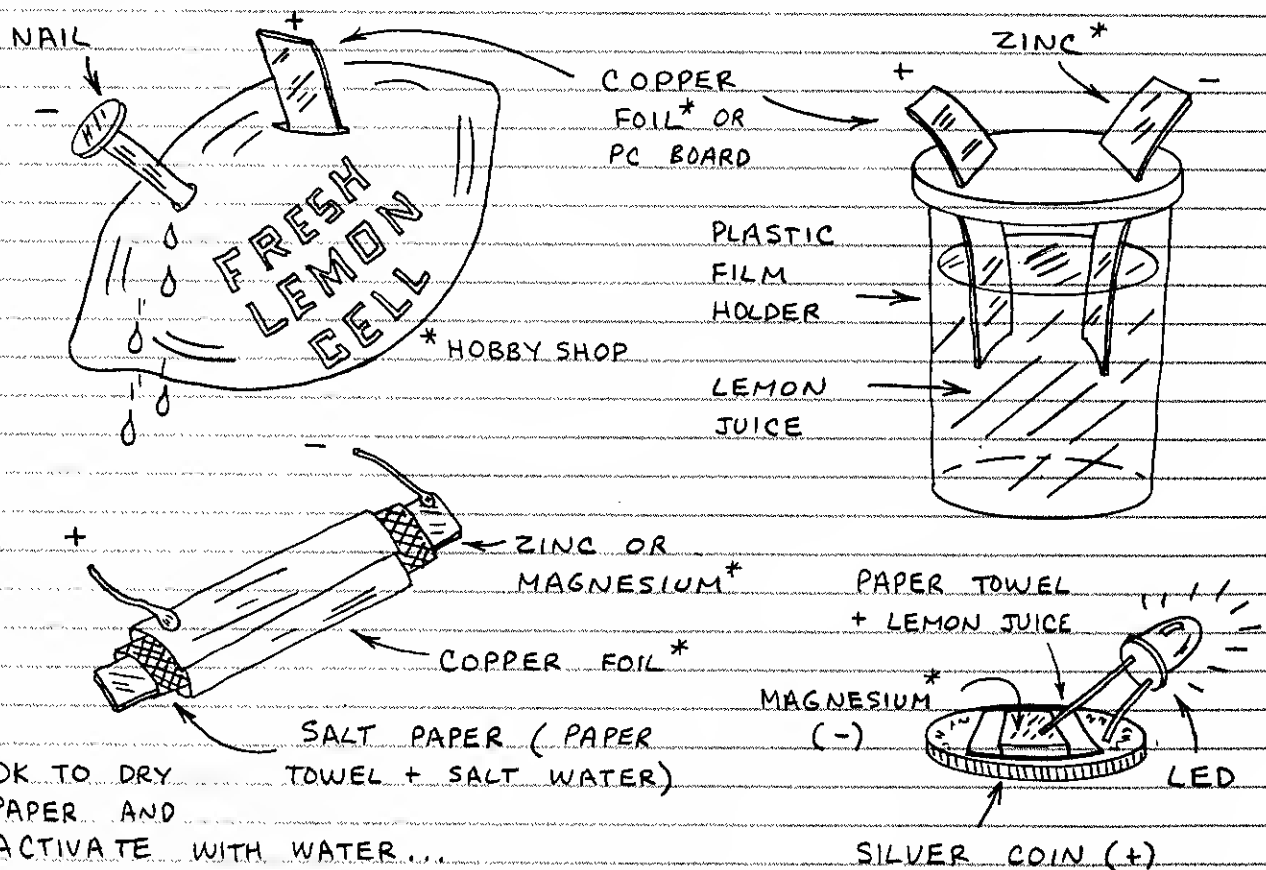 NAIL
-
+
COPPER
FOIL* OR
PC BOARD
FRESH
LEMON
CELL
* HOBBY SHOP
ZINC*
+
-
PLASTIC
FILM
HOLDER
LEMON
JUICE
-
+
ZINC OR
MAGNESIUM*
COPPER FOIL*
SALT PAPER (PAPER
TOWEL + SALT WATER)
OK TO DRY
PAPER AND
ACTIVATE WITH WATER...
PAPER TOWEL
+ LEMON JUICE
MAGNESIUM*
(-)
LED
SILVER COIN (+)